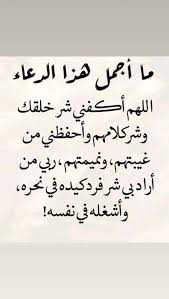 ما أجمل هذا الدعاء
اللهم أكفني شر خلقك
وشر كلامهم وأحفظني من
غيبتهم، ونميمتهم، ربي من
أراد بي شر فرد كيده في نحره،
وأشغله في نفسه!